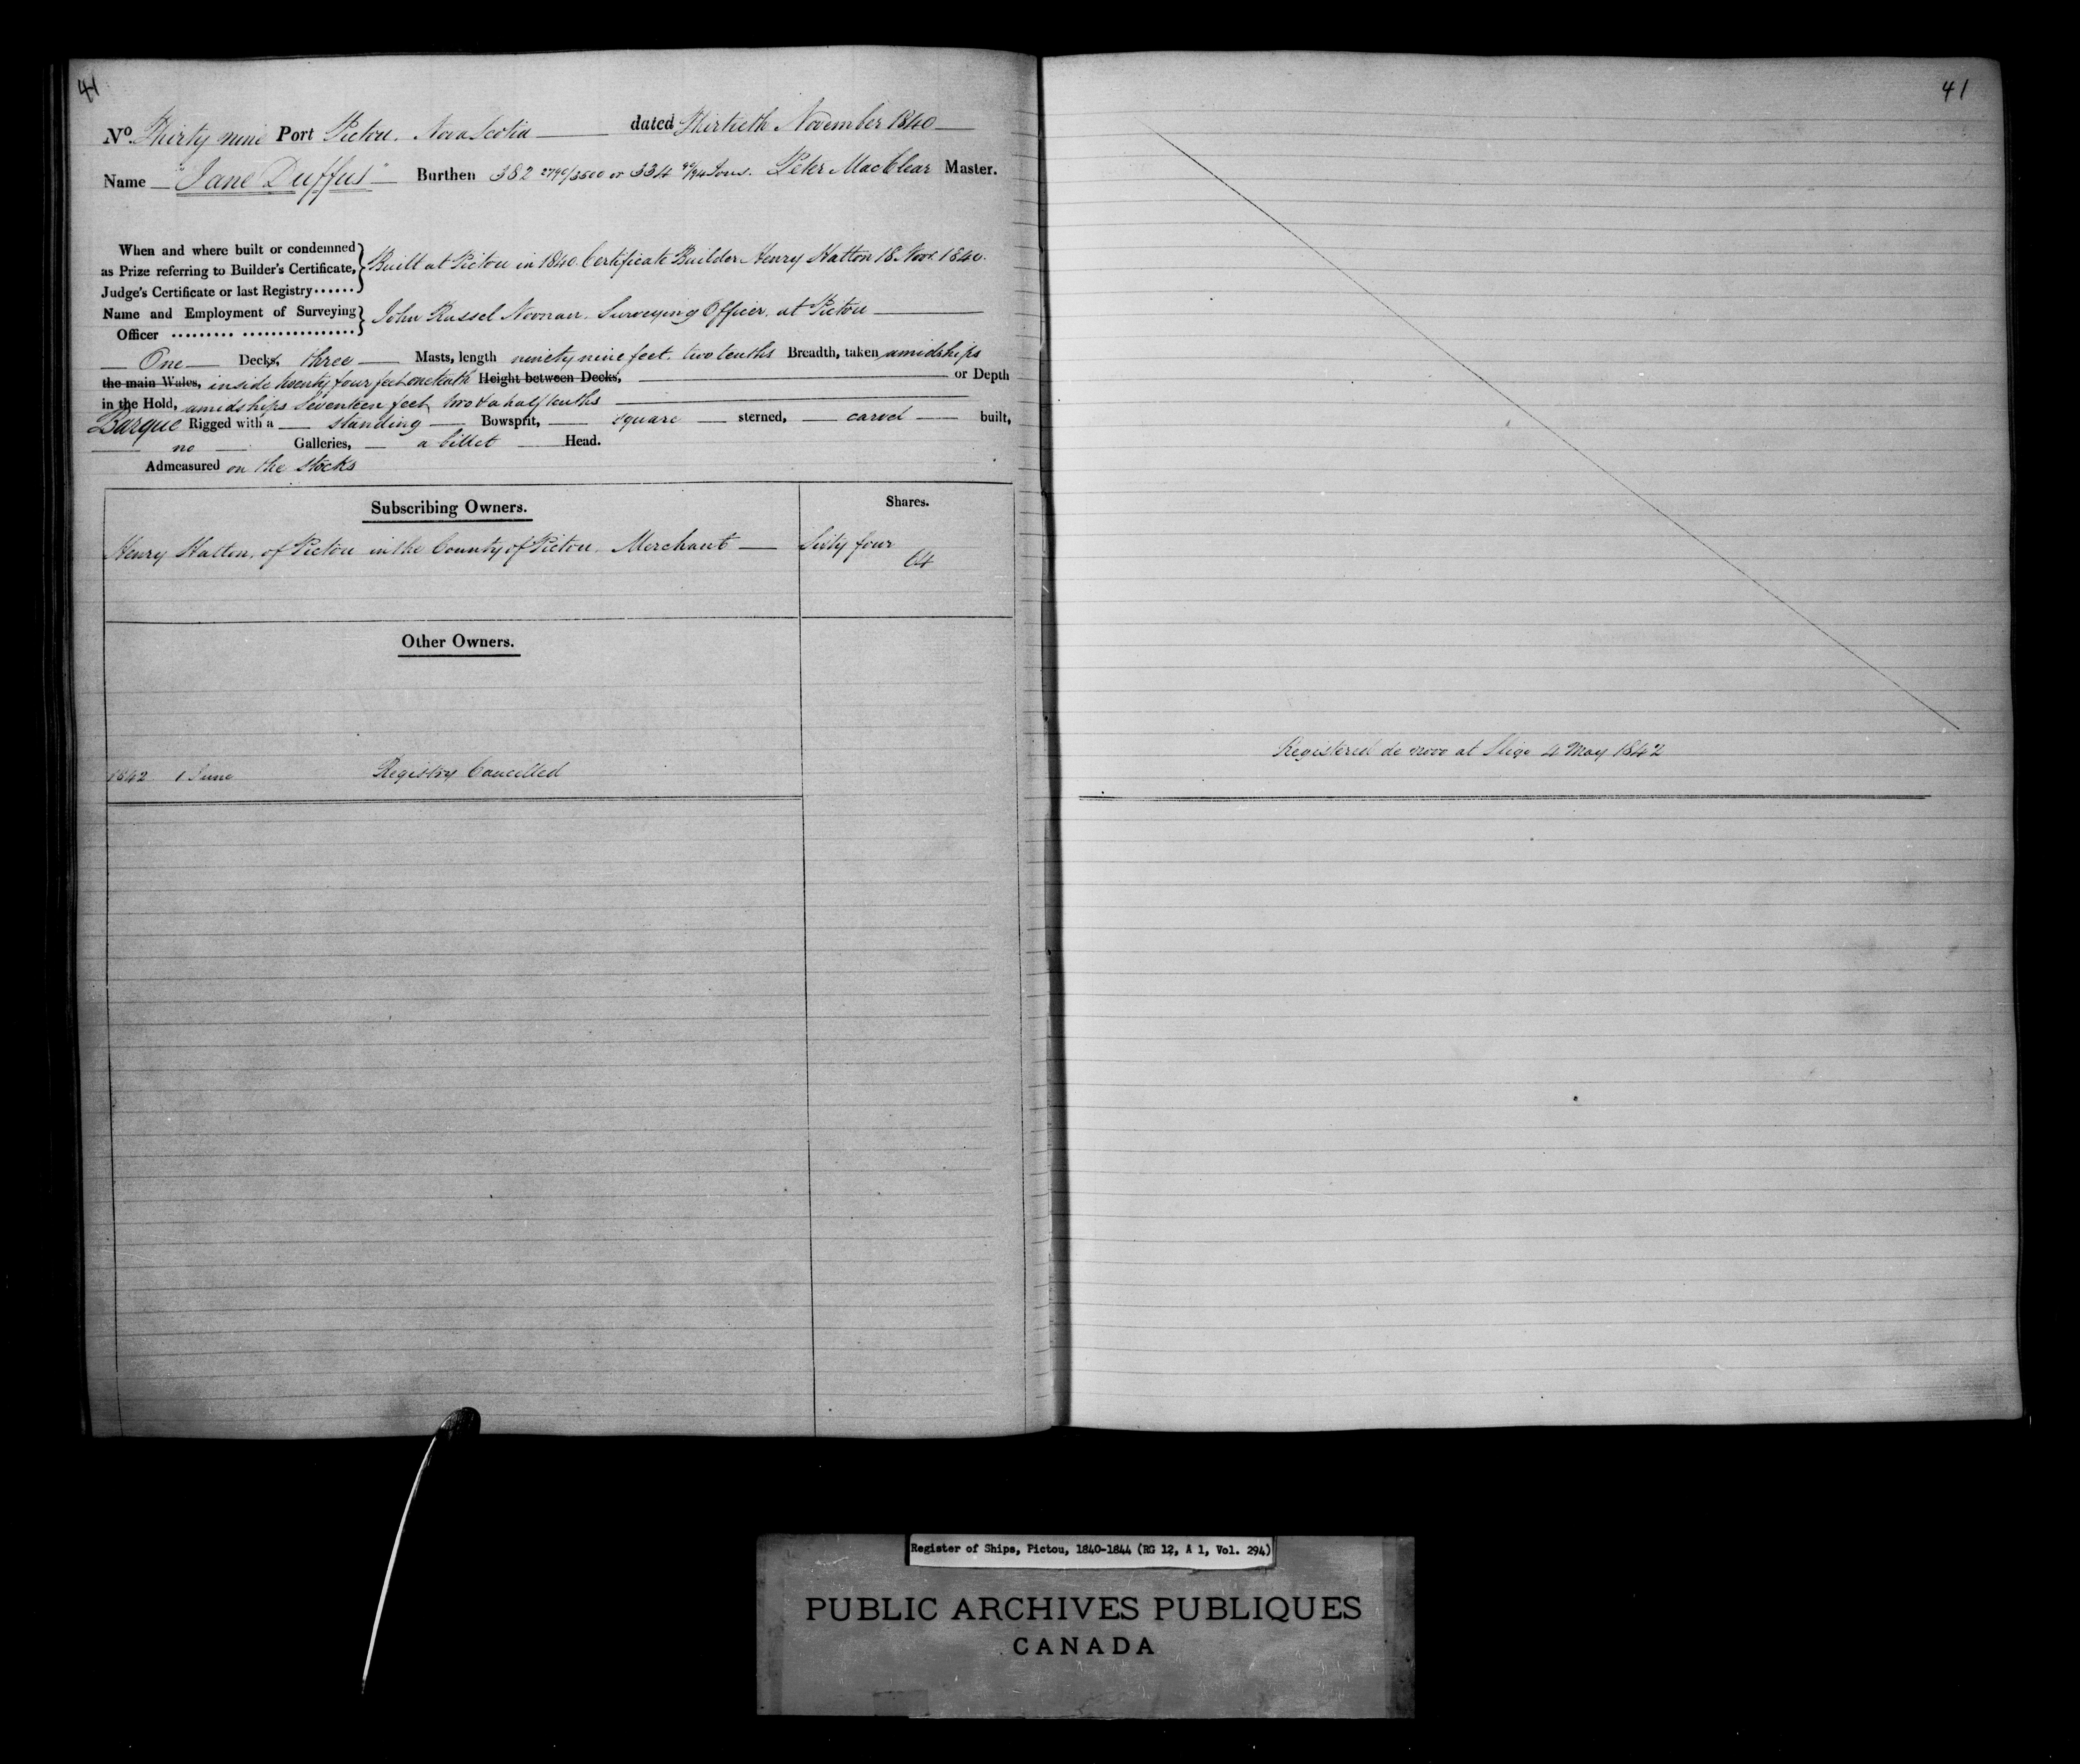 41
No. Thirty nine Port Pictou. Nova Scotia dated Thirtieth November 1840
Name "Jane Duffus" Burthen 382 2790/3500 or 334 90/94 Tons. Peter MacClear Master.
When and where built or condemned
as Prize referring to Builder's Certificate,
Judge's Certificate or last Registry
Built at Pictou in 1840. Certificate Builder Henry Hatton 18 Novr. 1840.
Name and Employment of Surveying
Officer
John Russel Noonan. Surveying Officer. at Pictou
One Decks, three Masts, length ninety nine feet. two tenths Breadth, taken amidships
the main Wales, inside twenty four feet one tenth Height between Decks, or Depth
in the Hold, amidships Seventeen feet, two & a half tenths
Barque Rigged with a standing Bowsprit, square sterned, carvel built,
no Galleries, a billet Head.
Admeasured on the stocks
Subscribing Owners. Shares.
Henry Hatton, of Pictou in the County of Pictou. Merchant Sixty four
64
Other Owners.
1842 1 June Registry Cancelled
41
Registered de novo at Sligo 4 May 1842
Register of Ships, Pictou, 1840-1844 (RG 12, A 1, Vol. 294)
PUBLIC ARCHIVES PUBLIQUES
CANADA